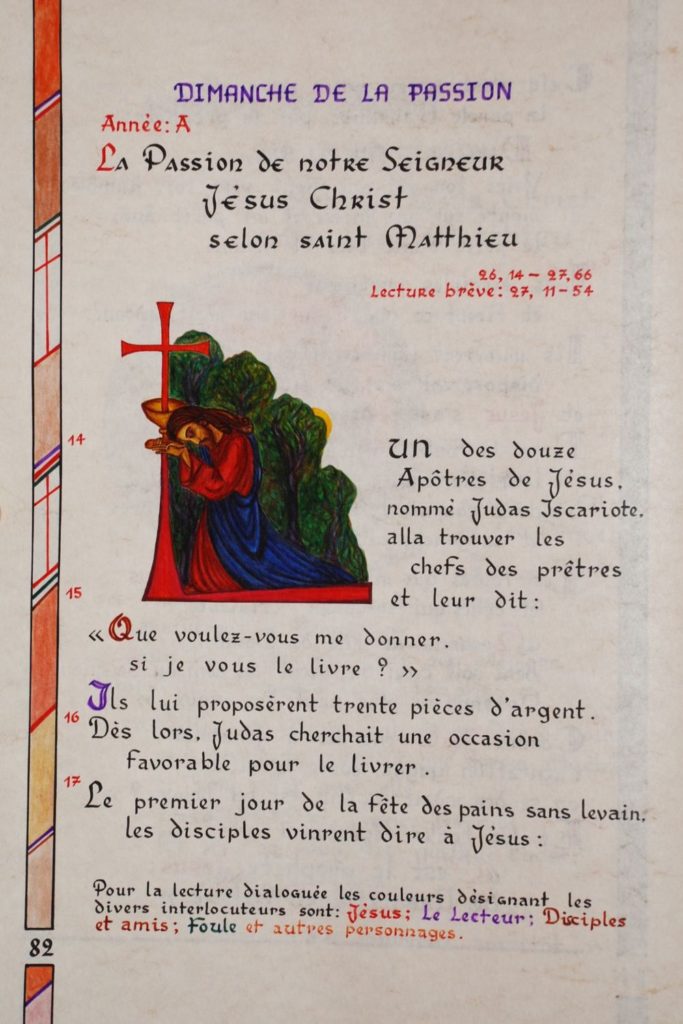 DIMANCHE DE LA PASSION
Année: A
La Passion de notre Seigneur
Jésus Christ
selon saint Matthieu
26, 14 – 27, 66
Lecture brève: 27, 11–54
14
Un des douze
Apôtres de Jésus,
nommé Judas Iscariote,
alla trouver les
chefs des prêtres
15
et leur dit:
« Que voulez-vous me donner,
si je vous le livre ? »
Ils lui proposèrent trente pièces d'argent.
16
Dès lors, Judas cherchait une occasion
favorable pour le livrer.
17
Le premier jour de la fête des pains sans levain,
les disciples vinrent dire à Jésus:
Pour la lecture dialoguée les couleurs désignant les
divers interlocuteurs sont: Jésus; Le Lecteur; Disciples
et amis; Foule et autres personnages.
82